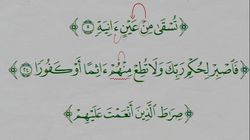 تُسْقَىٰ مِنْ عَيْنٍ ءَانِيَةٍ ٥
فَاصْبِرْ لِحُكْمِ رَبِّكَ وَلَا تُطِعْ مِنْهُمْ ءَاثِمًا أَوْ كَفُورًا ٢٤
صِرَاطَ الَّذِينَ أَنْعَمْتَ عَلَيْهِمْ